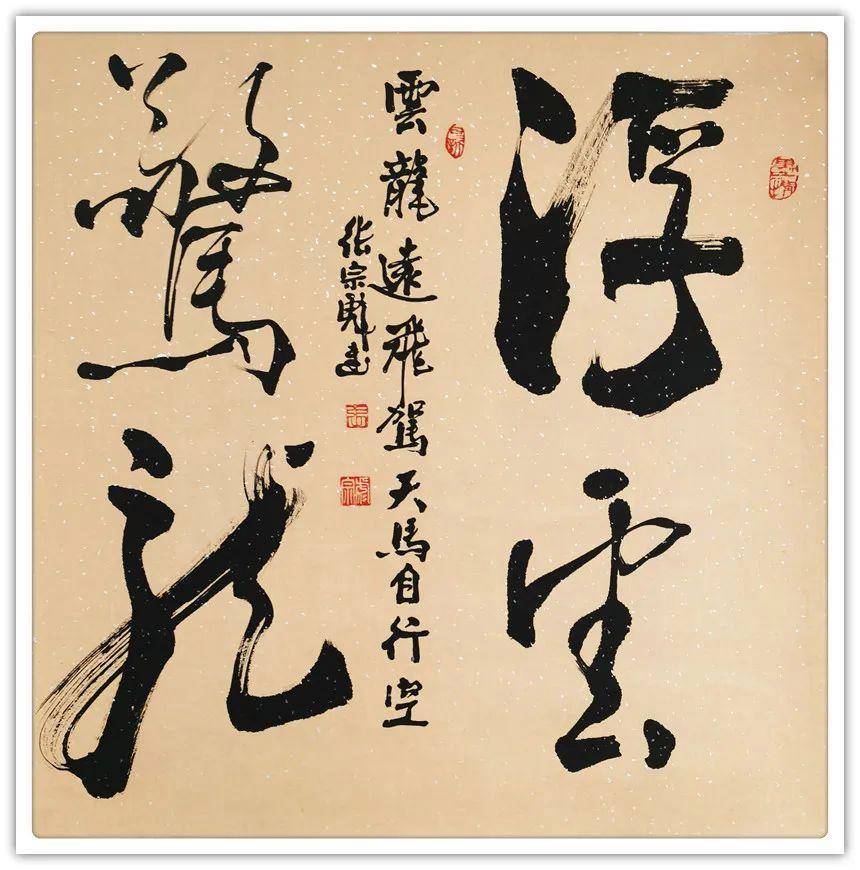 浮雲
雲龍遠飛駕天馬自行空
張宗彪書
驚龍